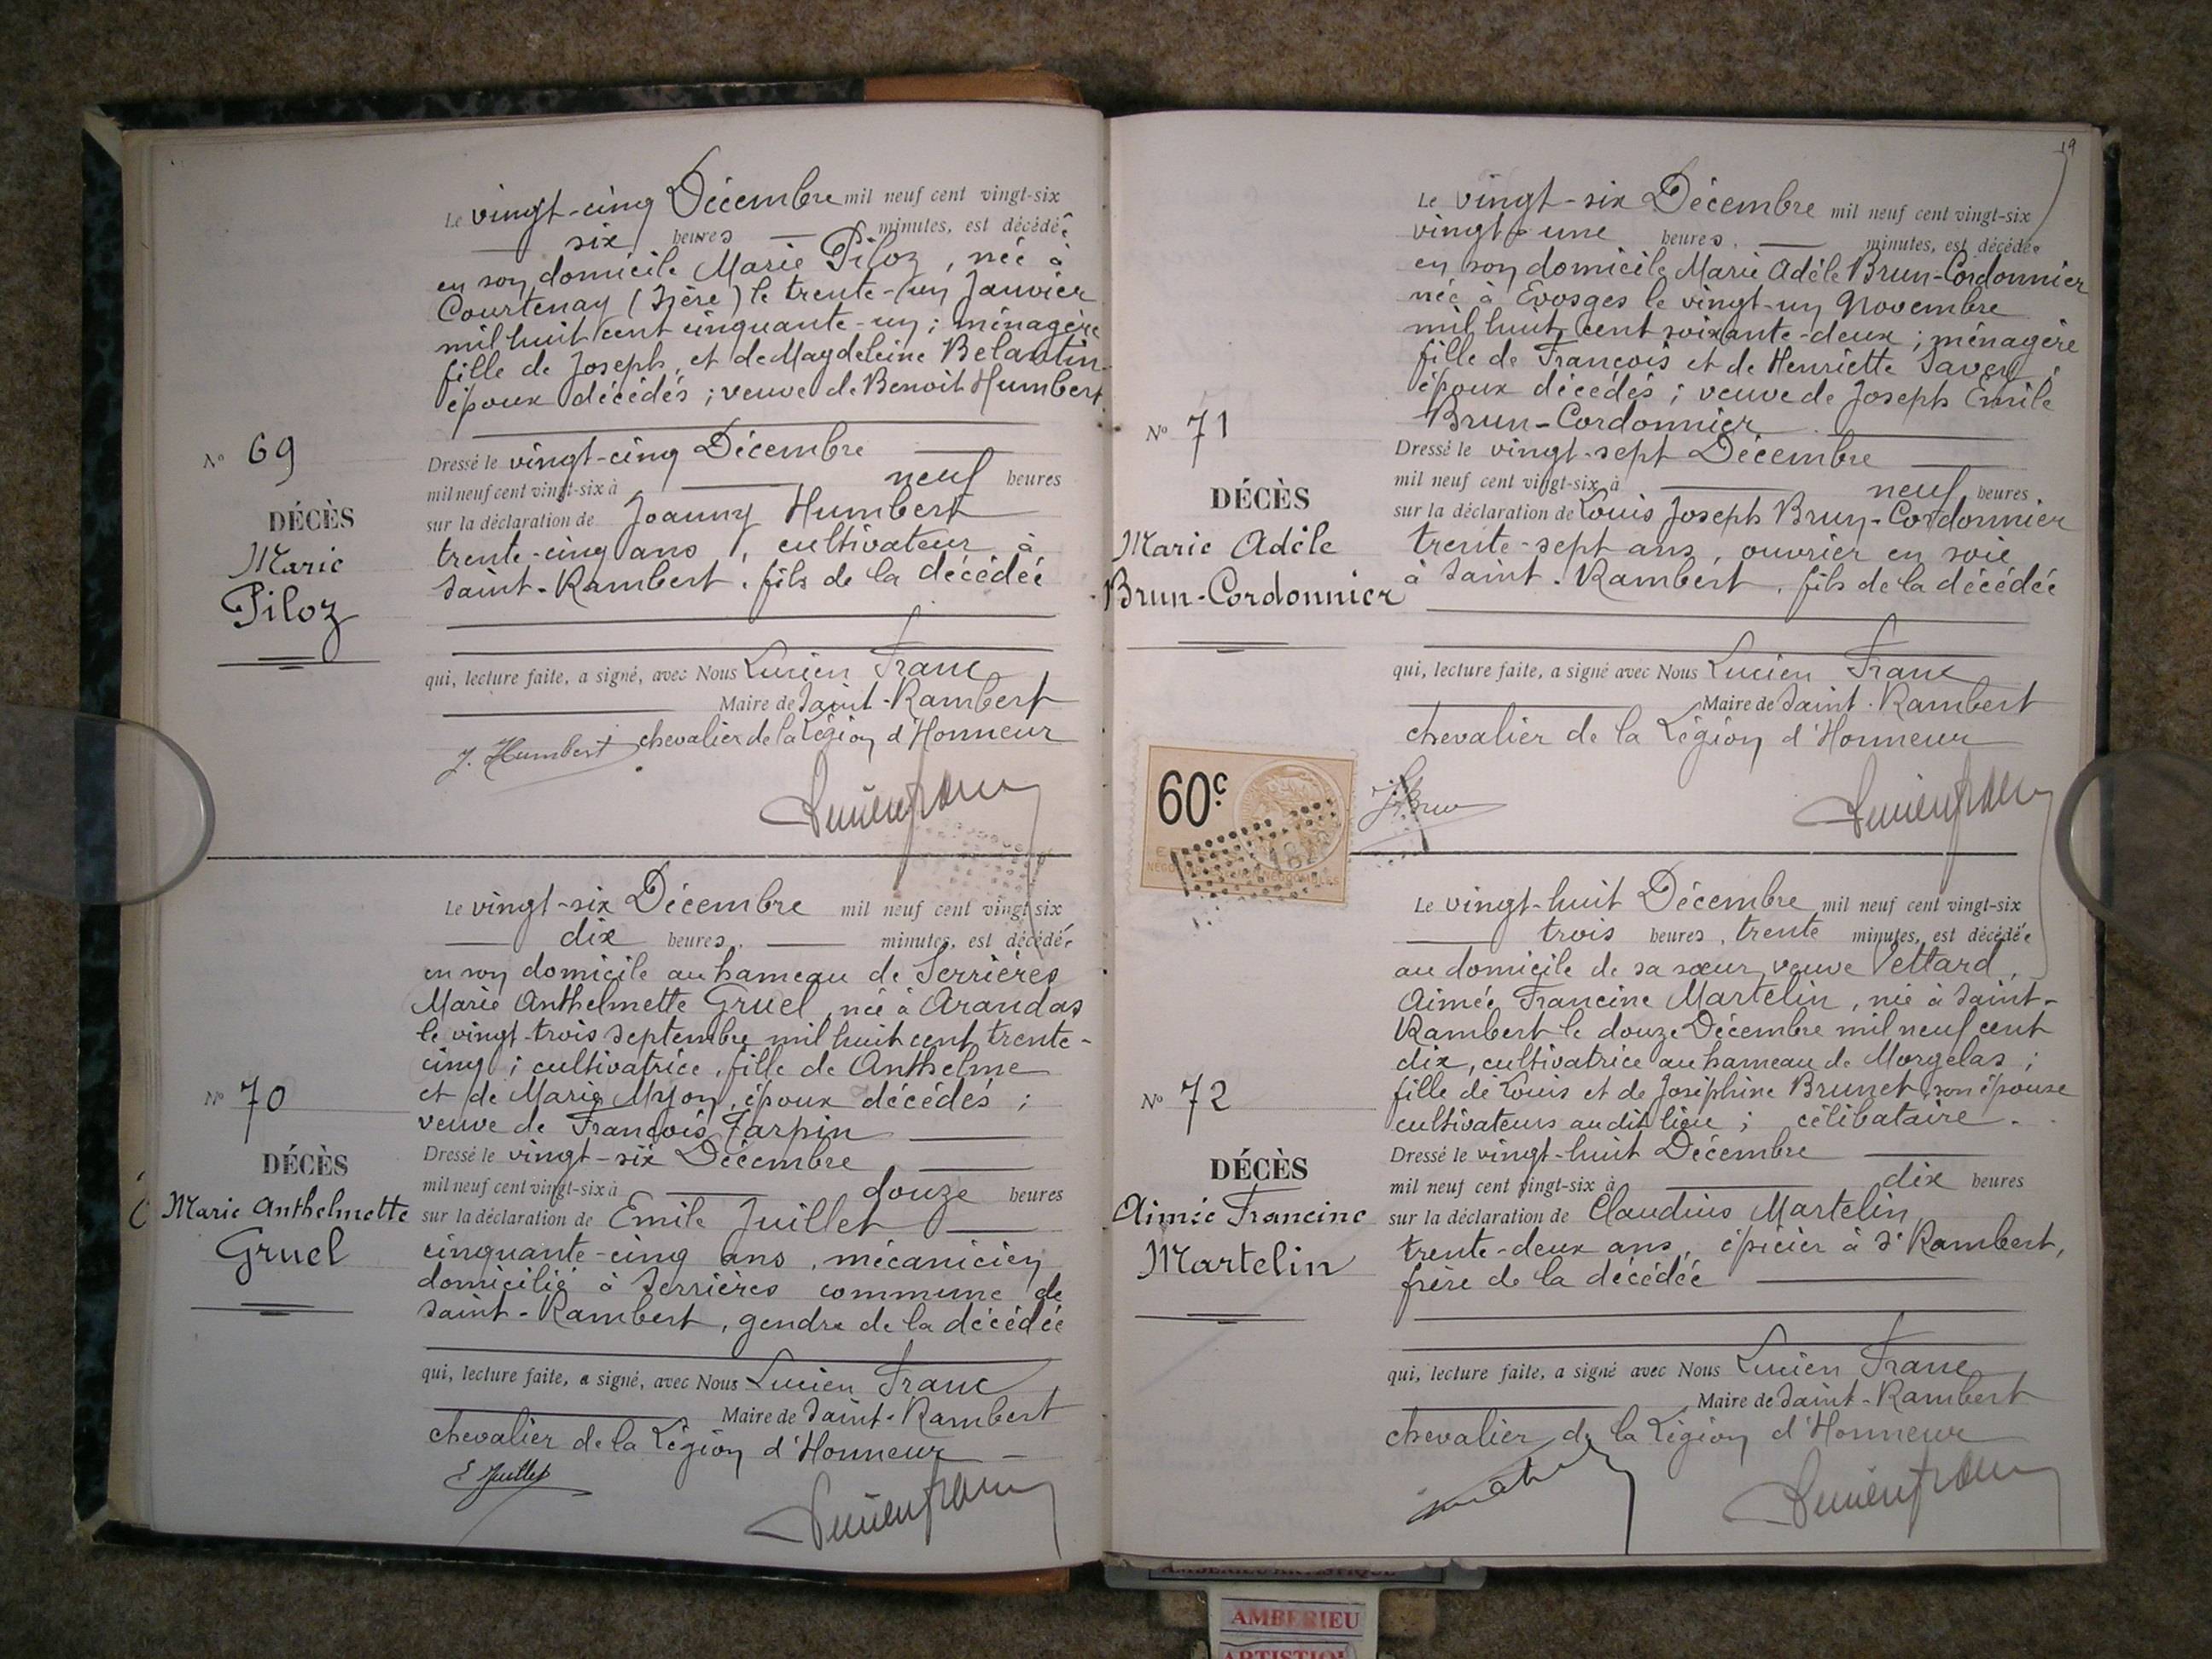 Le vingt-cinq Décembre mil neuf cent vingt-six
six heures — minutes, est décédée
en son domicile Marie Piloz, née à
Courtenay (Isère) le trente-un Janvier
mil huit cent cinquante-un ; ménagère
fille de Joseph, et de Magdeleine Belantin
époux décédés ; veuve de Benoit Humbert
N° 69
DÉCÈS
Marie
Piloz
Dressé le vingt-cinq Décembre
mil neuf cent vingt-six à neuf heures
sur la déclaration de Joanny Humbert
trente-cinq ans, cultivateur à
Saint-Rambert, fils de la décédée
qui, lecture faite, a signé, avec Nous Lucien Franc
Maire de Saint-Rambert
chevalier de la Légion d'Honneur
J. Humbert
Lucien Franc
Le vingt-six Décembre mil neuf cent vingt-six
dix heures. — minutes, est décédée
en son domicile au hameau de Serrières
Marie Anthelmette Gruel, née à Arandas
le vingt-trois septembre mil huit cent trente-
cinq ; cultivatrice, fille de Anthelme
et de Marie Myon, époux décédés ;
veuve de François Tarpin
N° 70
DÉCÈS
Marie Anthelmette
Gruel
Dressé le vingt-six Décembre
mil neuf cent vingt-six à douze heures
sur la déclaration de Emile Juillet
cinquante-cinq ans, mécanicien
domicilié à Serrières commune de
Saint-Rambert, gendre de la décédée
qui, lecture faite, a signé, avec Nous Lucien Franc
Maire de Saint-Rambert
chevalier de la Légion d'Honneur
E Juillet
Lucien Franc
19
Le vingt-six Décembre mil neuf cent vingt-six
vingt-une heures. — minutes, est décédée
en son domicile Marie Adèle Brun-Cordonnier
née à Evosges le vingt-un Novembre
mil huit cent soixante-deux ; ménagère
fille de François et de Henriette Savey,
époux décédés ; veuve de Joseph Emile
Brun-Cordonnier
N° 71
DÉCÈS
Marie Adèle
Brun-Cordonnier
Dressé le vingt-sept Décembre
mil neuf cent vingt-six à neuf heures.
sur la déclaration de Louis Joseph Brun-Cordonnier
trente-sept ans, ouvrier en soie
à Saint-Rambert, fils de la décédée
qui, lecture faite, a signé avec Nous Lucien Franc
Maire de Saint-Rambert
chevalier de la Légion d'Honneur
60c
Lucien Franc
Le vingt-huit Décembre mil neuf cent vingt-six
trois heures, trente minutes, est décédée
au domicile de sa sœur, veuve Vettard,
Aimée Francine Martelin, née à Saint-
Rambert le douze Décembre mil neuf cent
dix, cultivatrice au hameau de Morgelas ;
fille de Louis et de Joséphine Brunet son épouse
cultivateurs audit lieu ; célibataire.
N° 72
DÉCÈS
Aimée Francine
Martelin
Dressé le vingt-huit Décembre
mil neuf cent vingt-six à dix heures
sur la déclaration de Claudius Martelin
trente-deux ans, épicier à St Rambert,
frère de la décédée
qui, lecture faite, a signé avec Nous Lucien Franc
Maire de Saint-Rambert
chevalier de la Légion d'Honneur
Lucien Franc
AMBERIEU ARTISTIQUE
AMBERIEU
ARTISTIQUE